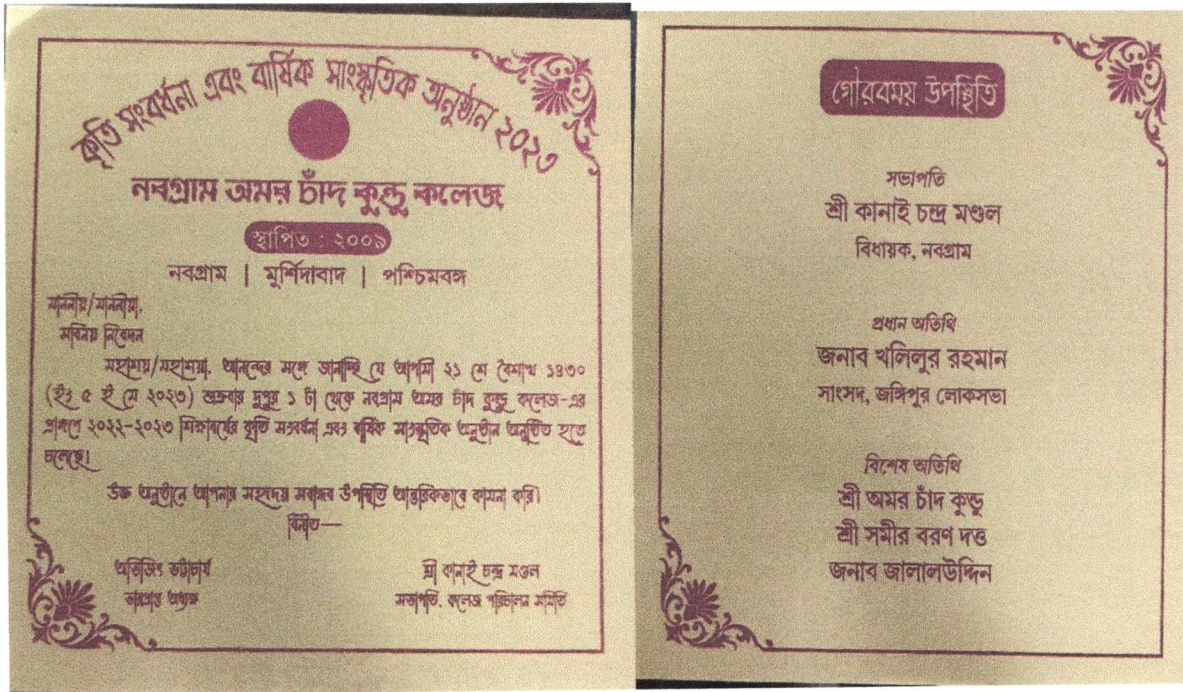 কৃতি সংবর্ধনা এবং বার্ষিক সাংস্কৃতিক অনুষ্ঠান ২০২৩
নবগ্রাম অমর চাঁদ কুন্ডু কলেজ
স্থাপিত : ২০০৯
নবগ্রাম | মুর্শিদাবাদ | পশ্চিমবঙ্গ
মাননীয়/মাননীয়া,
সবিনয় নিবেদন
মহাশয়/মহাশয়া, আনন্দের সঙ্গে জানাচ্ছি যে আগামী ২১ শে বৈশাখ ১৪৩০
(ইং ৫ ই মে ২০২৩) শুক্রবার দুপুর ১ টা থেকে নবগ্রাম অমর চাঁদ কুন্ডু কলেজ-এর
প্রাঙ্গণে ২০২২-২০২৩ শিক্ষাবর্ষের কৃতি সংবর্ধনা এবং বার্ষিক সাংস্কৃতিক অনুষ্ঠান অনুষ্ঠিত হতে
চলেছে।
উক্ত অনুষ্ঠানে আপনার সহৃদয় সবান্ধব উপস্থিতি আন্তরিকভাবে কামনা করি।
বিনীত—
অভিজিৎ ভট্টাচার্য
ভারপ্রাপ্ত অধ্যক্ষ
শ্রী কানাই চন্দ্র মণ্ডল
সভাপতি, কলেজ পরিচালন সমিতি
গৌরবময় উপস্থিতি
সভাপতি
শ্রী কানাই চন্দ্র মণ্ডল
বিধায়ক, নবগ্রাম
প্রধান অতিথি
জনাব খলিলুর রহমান
সাংসদ, জঙ্গিপুর লোকসভা
বিশেষ অতিথি
শ্রী অমর চাঁদ কুন্ডু
শ্রী সমীর বরণ দত্ত
জনাব জালালউদ্দিন